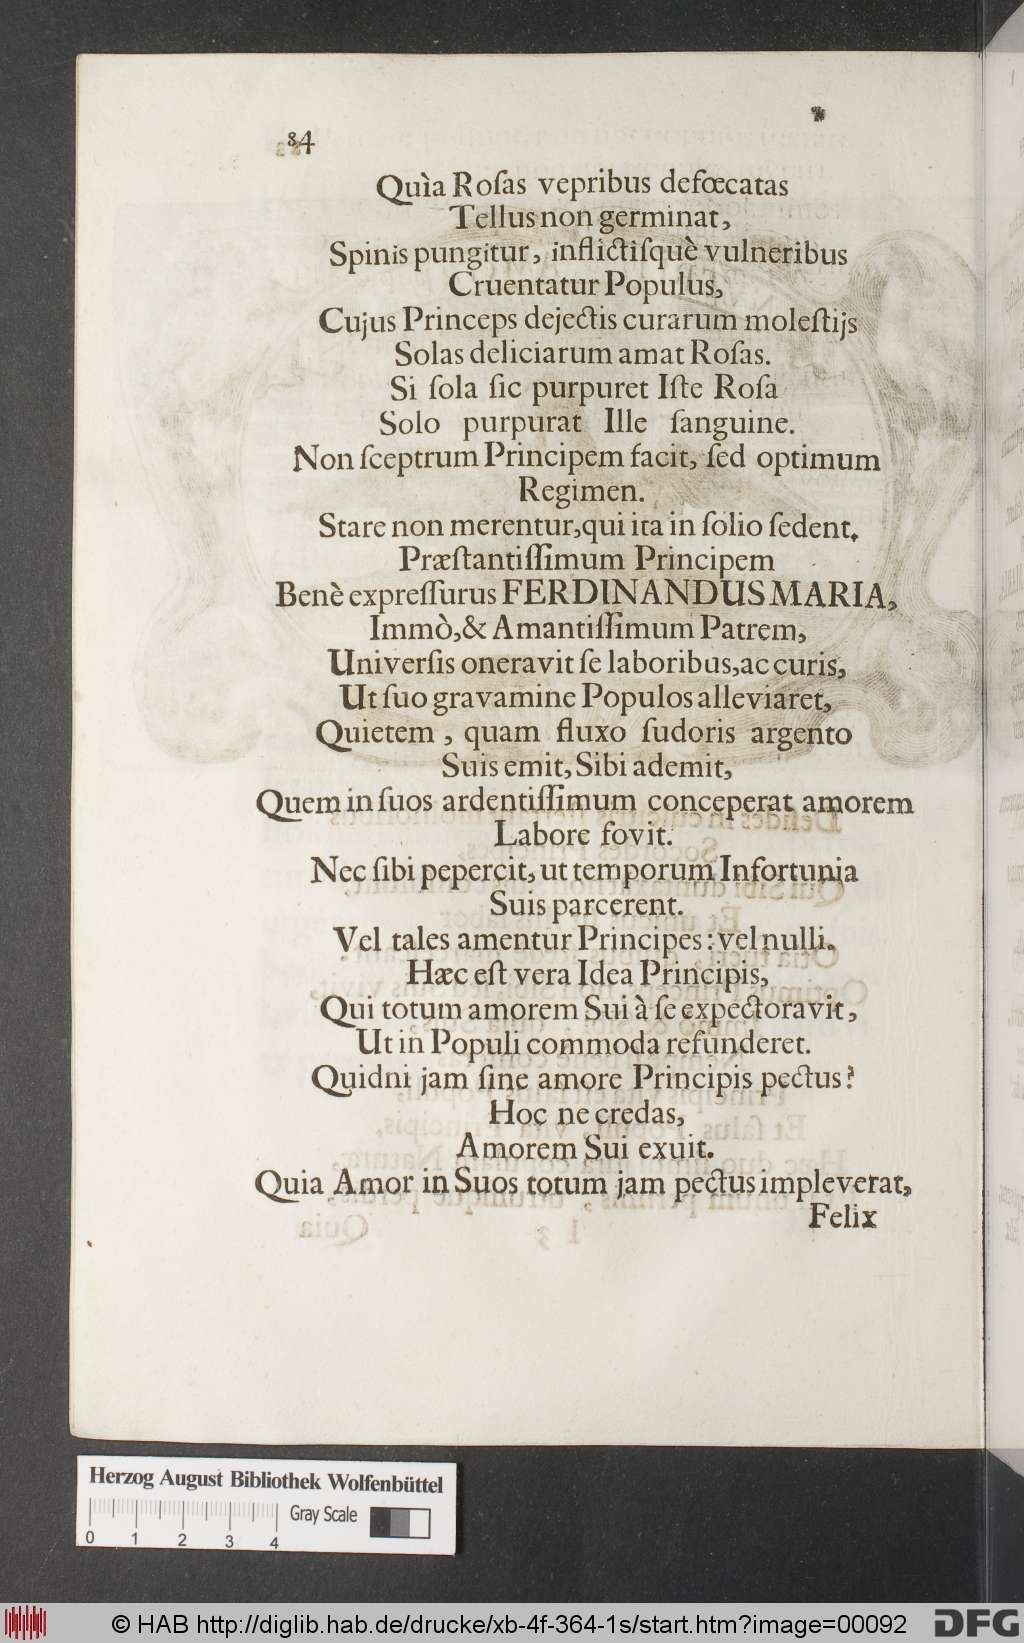 84
Quìa Roſas vepribus defœcatas
Tellus non germinat,
Spinis pungitur, inflictiſquè vulneribus
Cruentatur Populus,
Cujus Princeps dejectis curarum moleſtijs
Solas deliciarum amat Roſas.
Si ſola ſic purpuret Iſte Roſa
Solo purpurat Ille ſanguine.
Non ſceptrum Principem facit, ſed optimum
Regimen.
Stare non merentur, qui ita in ſolio ſedent.
Præſtantiſſimum Principem
Benè expreſſurus FERDINANDUS MARIA,
Immò, & Amantiſſimum Patrem,
Univerſis oneravit ſe laboribus, ac curis,
Ut ſuo gravamine Populos alleviaret,
Quietem, quam fluxo ſudoris argento
Suis emit, Sibi ademit,
Quem in ſuos ardentiſſimum conceperat amorem
Labore fovit.
Nec ſibi pepercit, ut temporum Infortunia
Suis parcerent.
Vel tales amentur Principes: vel nulli.
Hæc eſt vera Idea Principis,
Qui totum amorem Sui à ſe expectoravit,
Ut in Populi commoda refunderet.
Quidni jam ſine amore Principis pectus?
Hoc ne credas,
Amorem Sui exuit.
Quia Amor in Suos totum jam pectus impleverat,
Felix
Herzog August Bibliothek Wolfenbüttel
Gray Scale
0 1 2 3 4
© HAB http://diglib.hab.de/drucke/xb-4f-364-1s/start.htm?image=00092
DFG